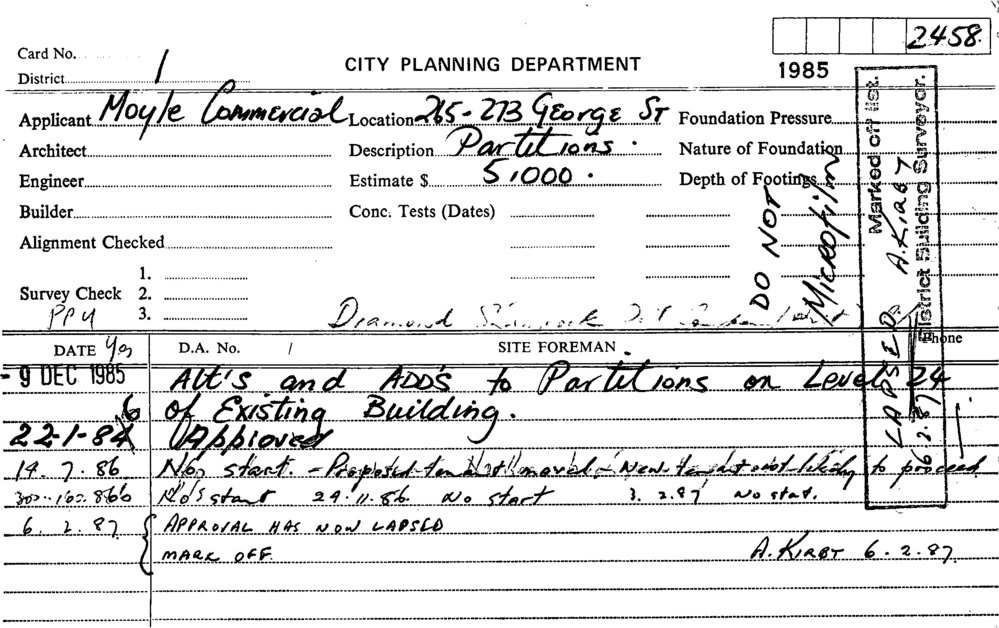 2458.
Card No.
CITY PLANNING DEPARTMENT
1985
District 1
Applicant Moyle Commercial Location 265-273 George St Foundation Pressure
Architect Description Partitions. Nature of Foundation
Engineer Estimate $ 5,000. Depth of Footings
Builder Conc. Tests (Dates)
Alignment Checked
1.
Survey Check 2.
3.
DO NOT
MICROFILM
Marked off list.
LAPSED A. KIRBY
6.2.87 District Building Surveyor.
Diamond
DATE D.A. No. SITE FOREMAN Phone
- 9 DEC 1985 Alt's and ADD'S to Partitions on Level 24
of Existing Building.
22-1-86 Approved
14. 7. 86 No start. - Proposed tenant moved - New tenant not likely to proceed
No start 24.11.86 No start 3. 2.87 No start.
6. 2. 87 APPROVAL HAS NOW LAPSED
MARK OFF. A. KIRBY 6.2.87